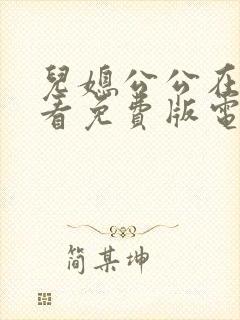 兒媳公公在
看免費版電
简某坤